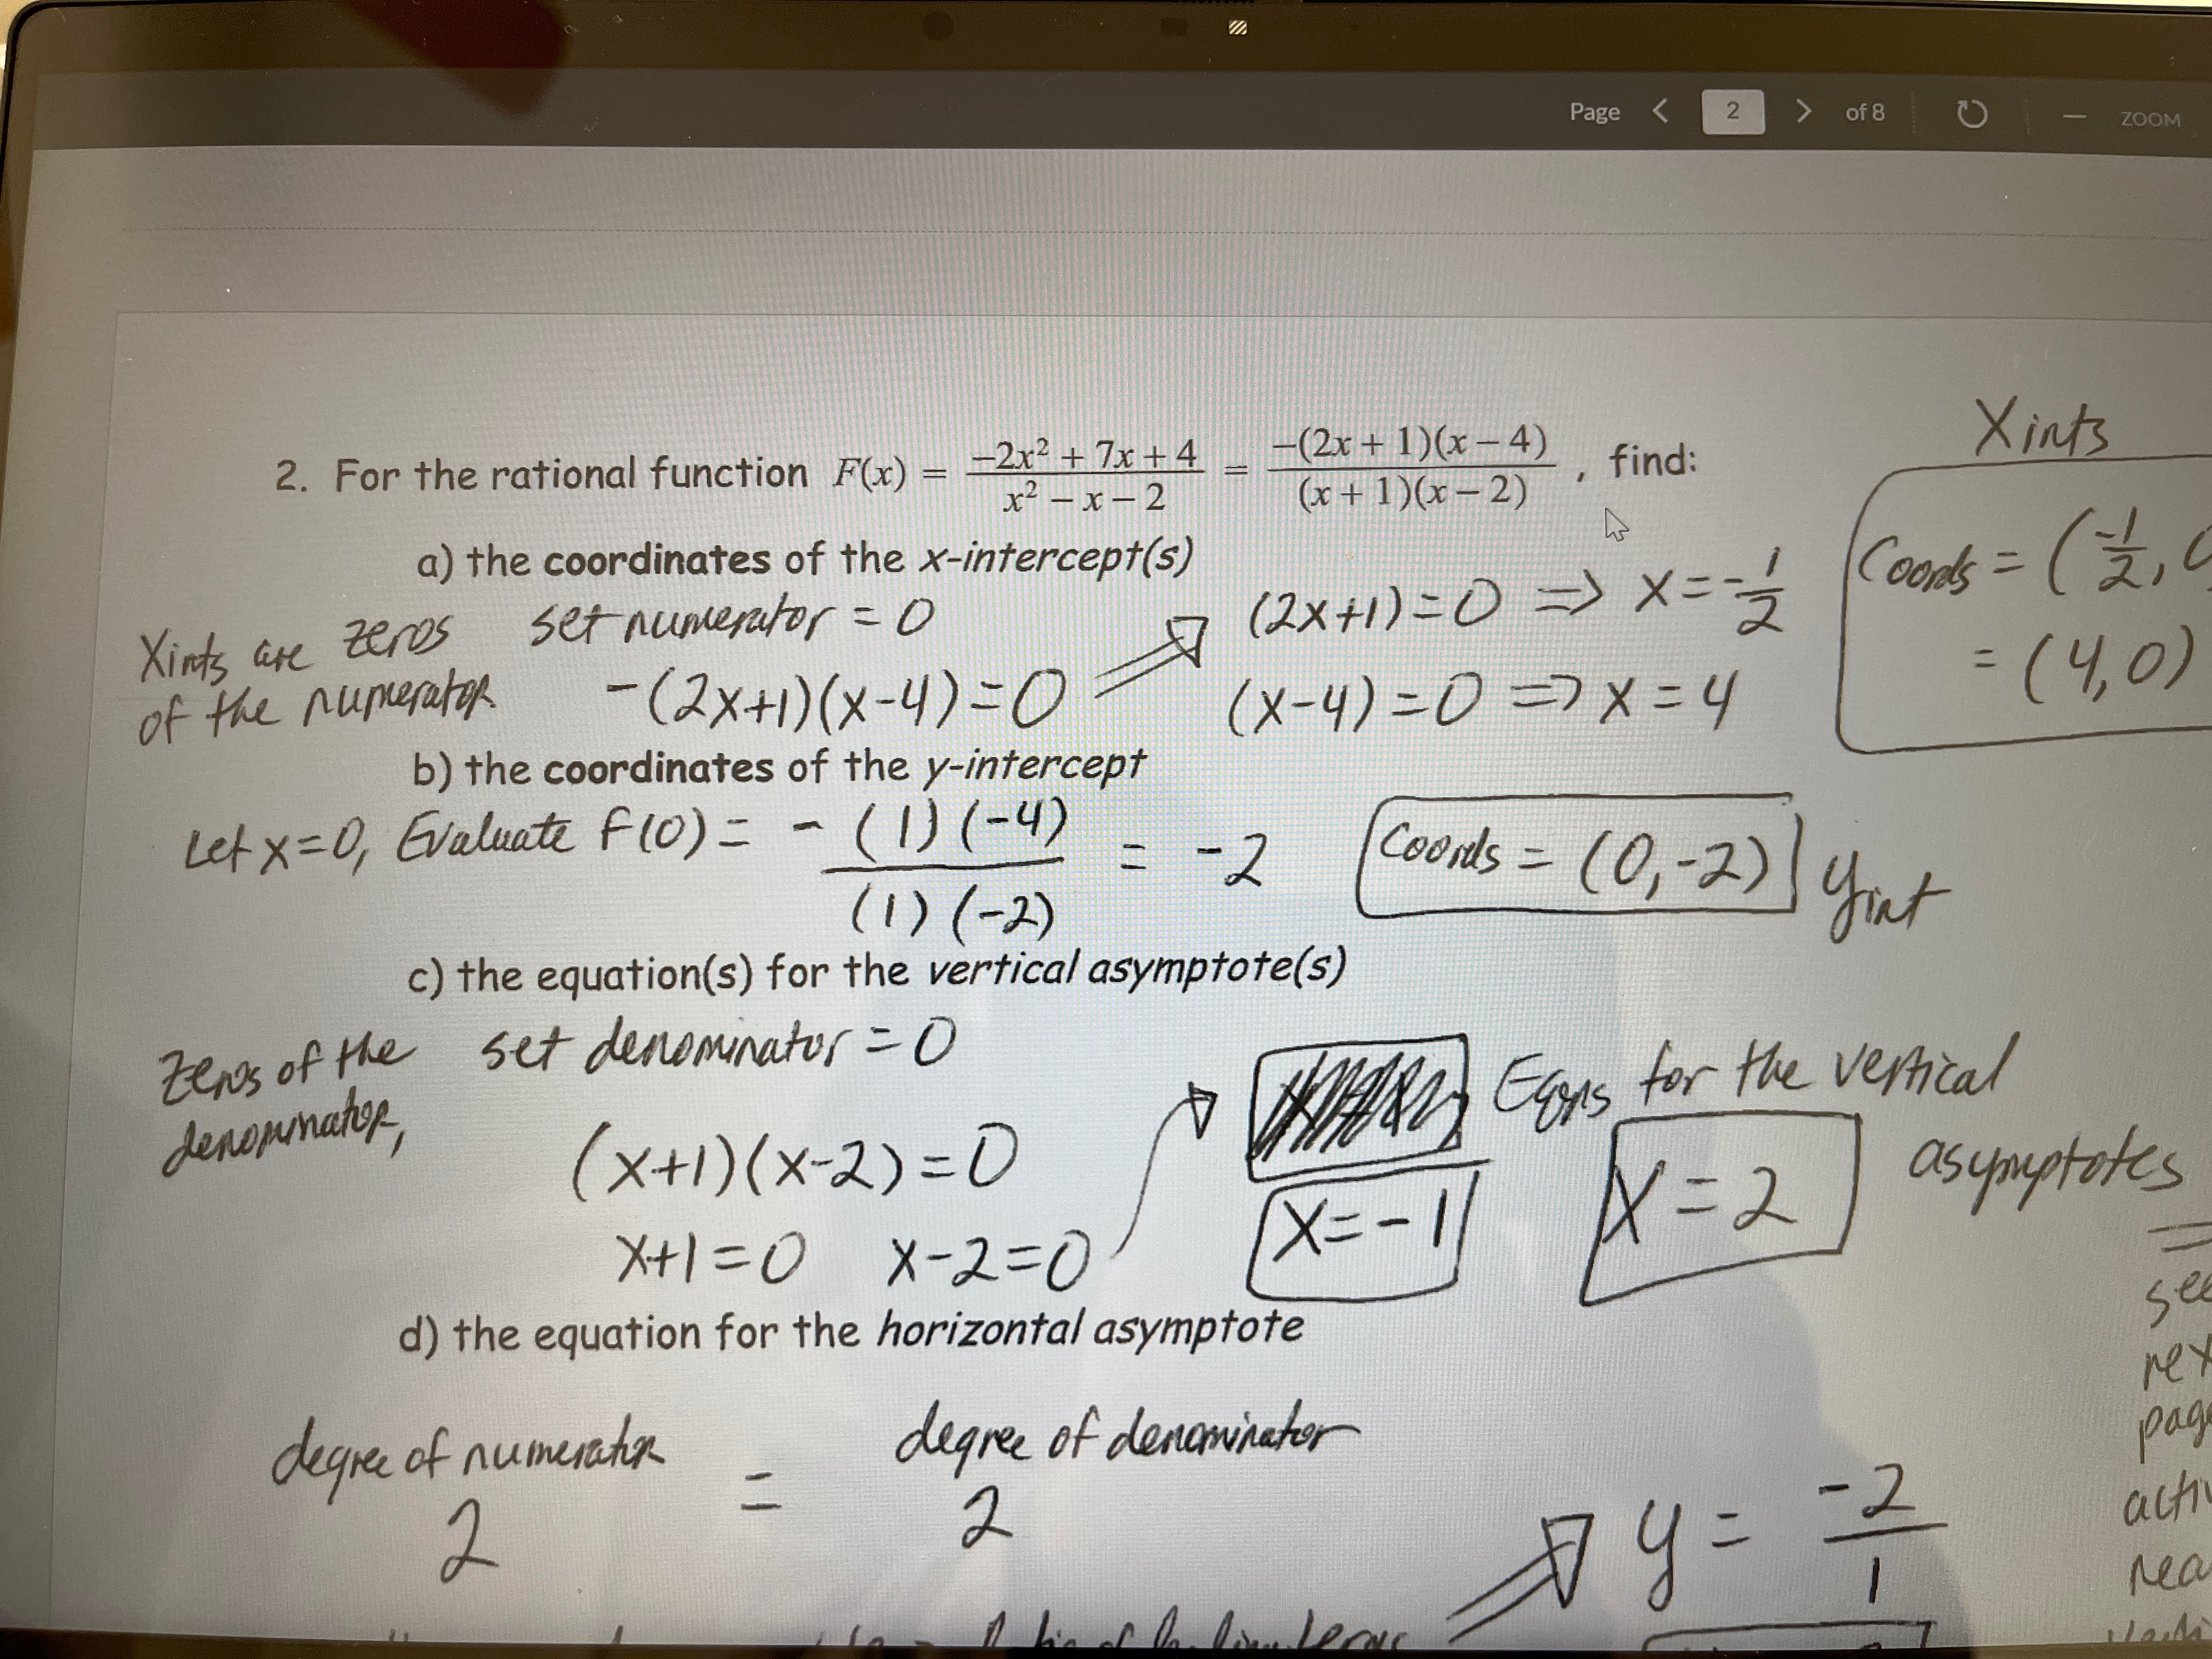 Page < 2 > of 8 — ZOOM
2. For the rational function F(x) = (-2x² + 7x + 4)/(x² - x - 2) = (-(2x + 1)(x - 4))/((x + 1)(x - 2)), find:
X ints
a) the coordinates of the x-intercept(s)
Xints are zeros of the numerator
set numerator = 0
-(2x+1)(x-4)=0
(2x+1)=0 => x=-1/2
(x-4)=0 => x=4
Coords = (-1/2,
= (4,0)
b) the coordinates of the y-intercept
Let x=0, Evaluate F(0) = -(1)(-4)/(1)(-2) = -2
Coords = (0,-2) yint
c) the equation(s) for the vertical asymptote(s)
Zeros of the denominator,
set denominator = 0
(x+1)(x-2)=0
x+1=0 x-2=0
Eqns for the vertical asymptotes
x=-1
x=2
see
page
d) the equation for the horizontal asymptote
degree of numerator = degree of denominator
2 2
y = -2/1